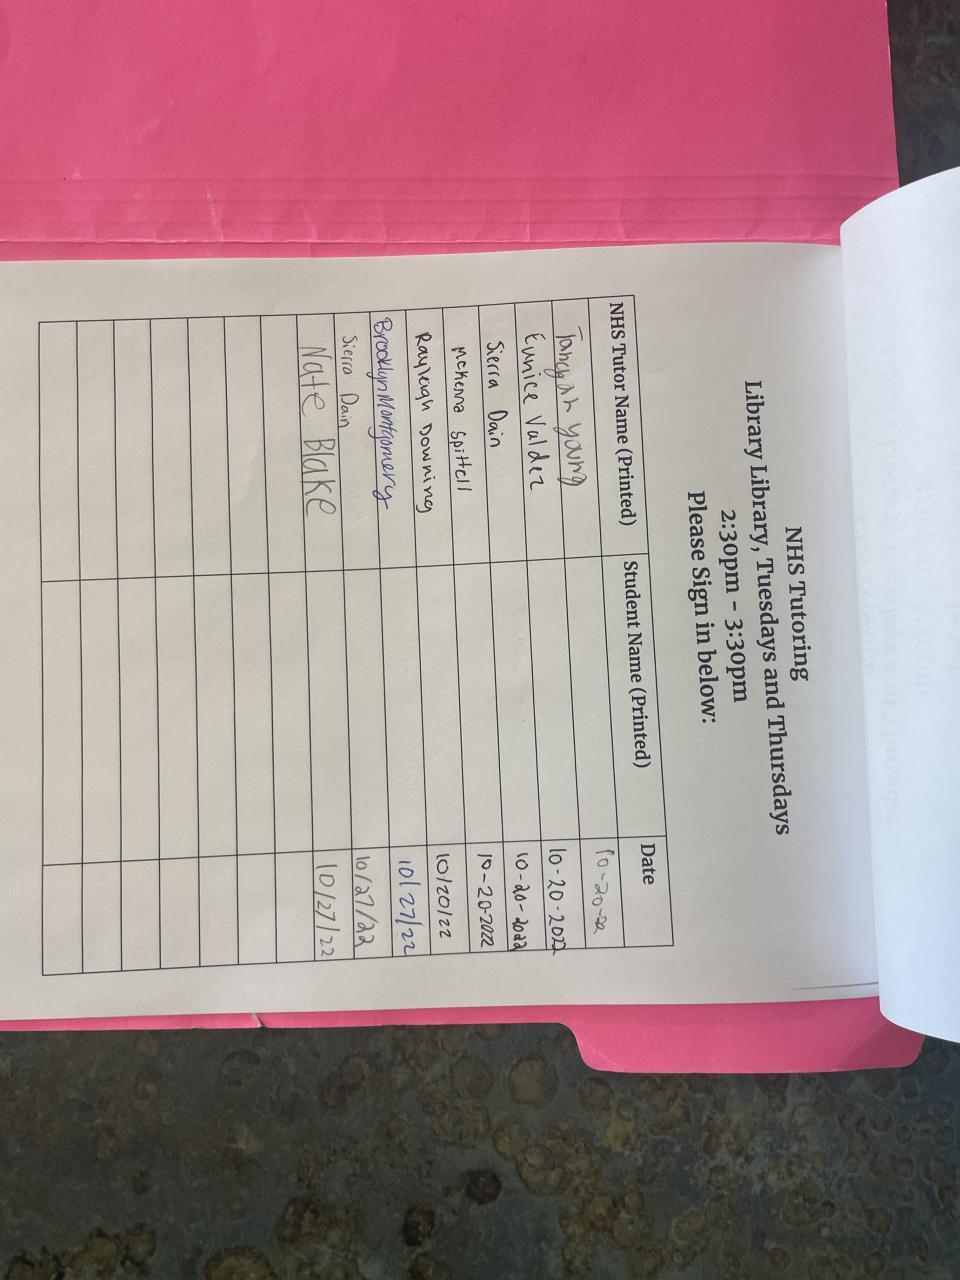 NHS Tutoring
Library Library, Tuesdays and Thursdays
2:30pm - 3:30pm
Please Sign in below:
NHS Tutor Name (Printed) Student Name (Printed) Date
young 10-20-22
Eunice Valdez 10-20-2022
Sierra Dain 10-20-2022
McKenna Spittell 10-20-2022
Rayleigh Downing 10/20/22
Brooklyn Montgomery 10/27/22
Sierra Dain 10/27/22
Nate Blake 10/27/22